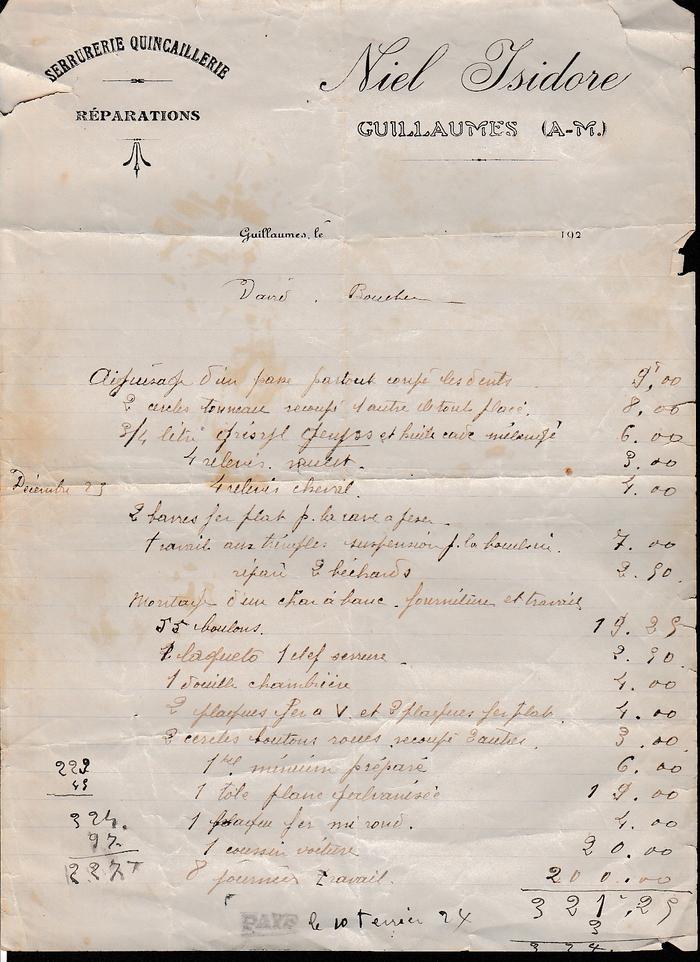 SERRURERIE QUINCAILLERIE
RÉPARATIONS
Niel Isidore
GUILLAUMES (A-M.)
Guillaumes, le 192
David . Boucher
Aiguisage d'un passe partout coupé les dents 9,00
2 cercles tonneau recoupé l'autre de tout placé. 8,00
3/4 litre grésyl et huile cade mélangé 6.00
4 relevés. mulet. 3.00
Décembre 23 4 relevés cheval. 4.00
2 barres fer plat p. la
travail aux suspension p. la 7.00
réparé 2 béchards 2.50
Montage d'un char à banc. fourniture et travail
55 boulons. 19.25
1 clef serrure 2.50
1 douille chambrière 4.00
2 plaques fer a V. et 2 plaques fer plat. 4.00
2 cercles boutons roues recoupé 2 autres. 3.00
1 minium préparé 6.00
1 tôle plane galvanisée 19.00
1 plaque fer mi rond. 4.00
1 coussin voiture 20.00
8 journées travail. 200.00
321,25
3
324.
97.
227
PAYÉ le 10 février 24